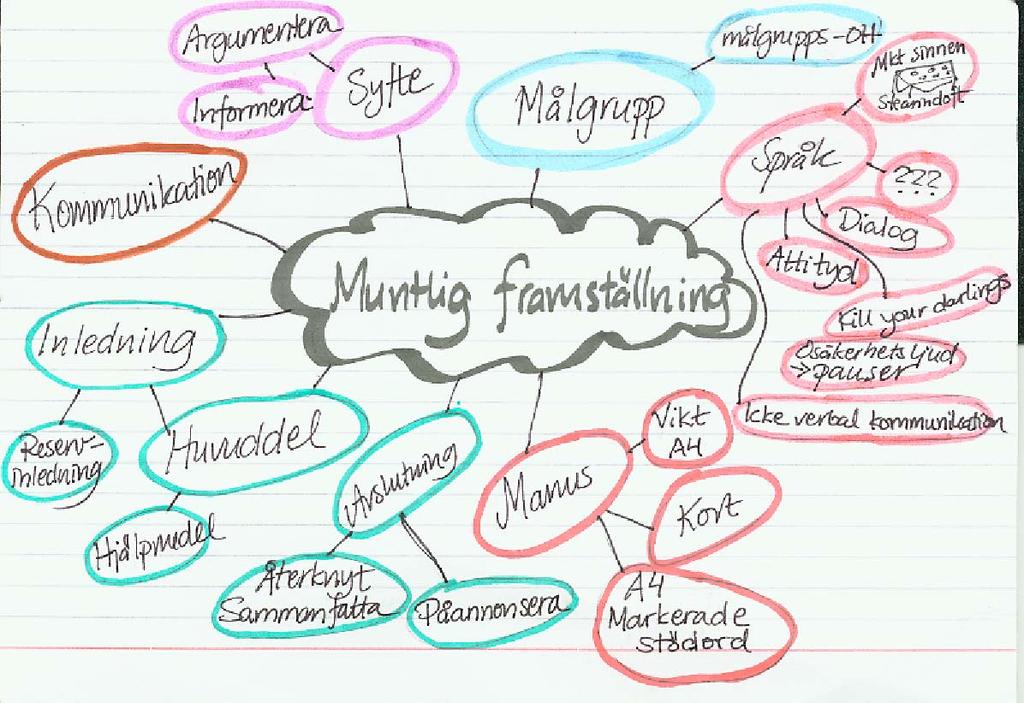 Argumentera
Informera
Syfte
Målgrupp
målgrupps-
Mkt sinnen
Språk
???
Dialog
Attityd
Kill your darlings
Osäkerhetsljud
→ pauser
Icke verbal kommunikation
Kommunikation
Muntlig framställning
Inledning
Reserv-
inledning
Huvuddel
Hjälpmedel
Avslutning
Återknyt
Sammanfatta
Påannonsera
Manus
Vikt
A4
Kort
A4
Markerade
stödord